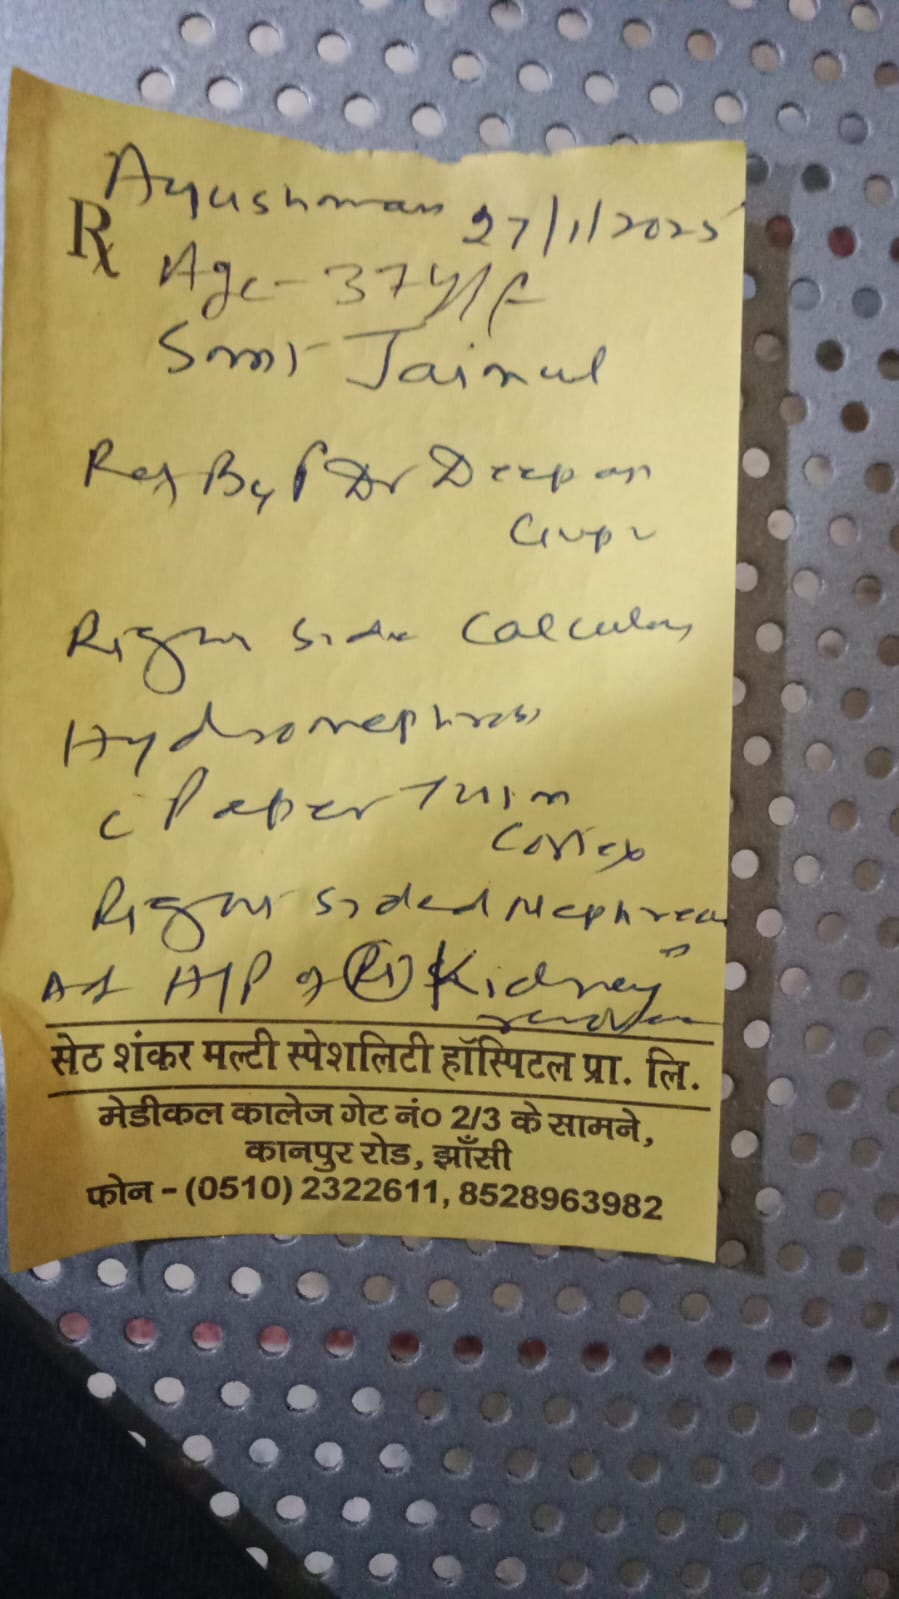 Ayushman 27/1/2025
Rx Age - 37y/F
Smt Jainul
Ref By Dr Deepan
Gup
Right side Calculus
Hydronephrosis
c Paper Thin
Cortex
Right sided Nephrec
Ad H/P of (Rt) Kidney
सेठ शंकर मल्टी स्पेशलिटी हॉस्पिटल प्रा. लि.
मेडीकल कालेज गेट नं० 2/3 के सामने,
कानपुर रोड, झाँसी
फोन - (0510) 2322611, 8528963982